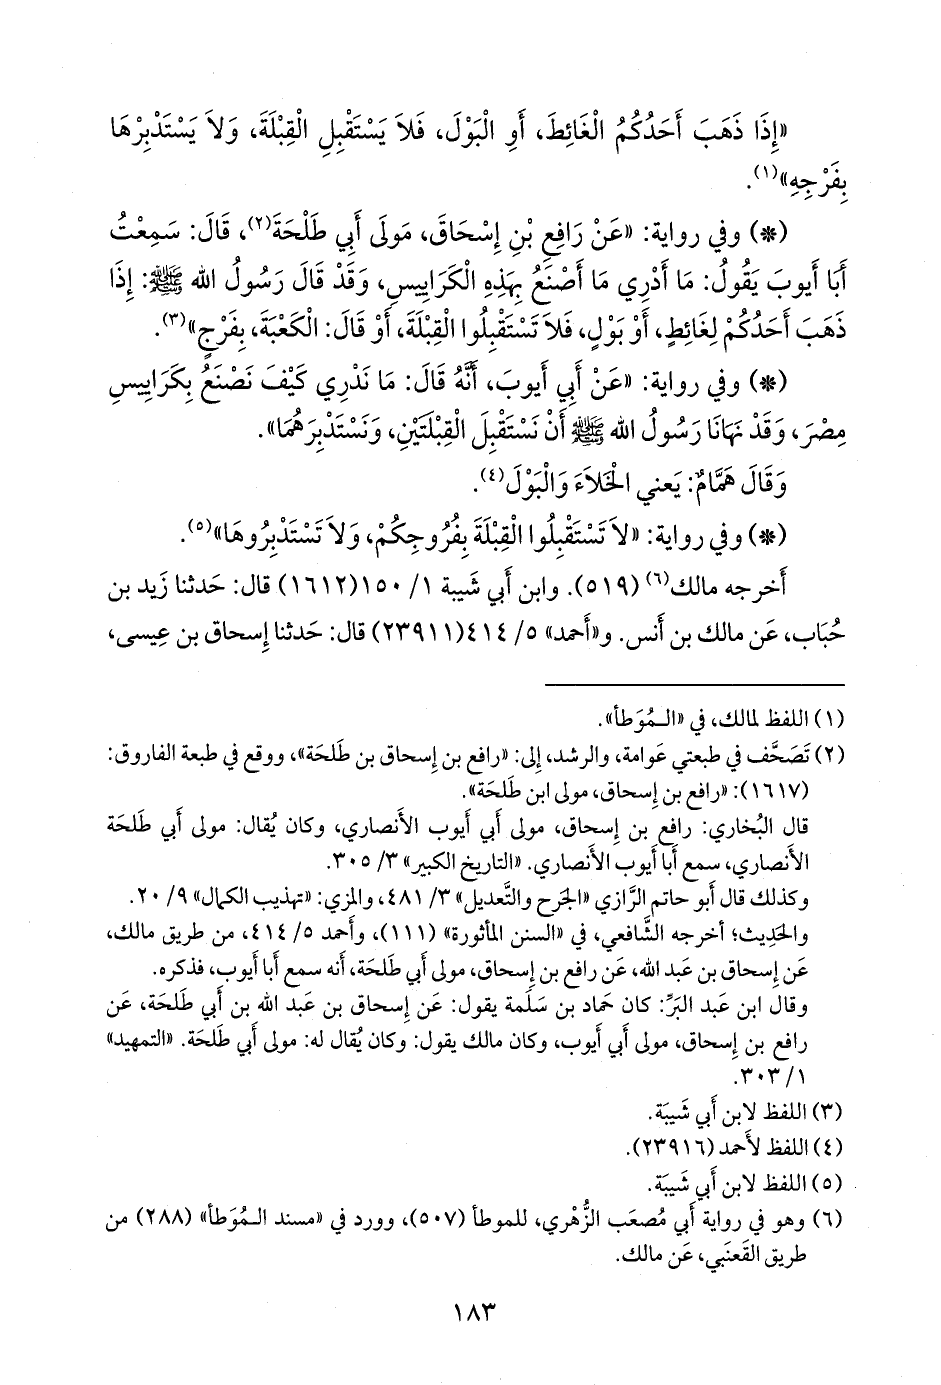 «إِذَا ذَهَبَ أَحَدُكُمُ الْغَائِطَ، أَوِ الْبَوْلَ، فَلاَ يَسْتَقْبِلِ الْقِبْلَةَ، وَلاَ يَسْتَدْبِرْهَا
بِفَرْجِهِ»(١).
(*) وفي رواية: «عَنْ رَافِعِ بْنِ إِسْحَاقَ، مَولَى أَبِي طَلْحَةَ(٢)، قَالَ: سَمِعْتُ
أَبَا أَيوبَ يَقُولُ: مَا أَدْرِي مَا أَصْنَعُ بِهَذِهِ الْكَرَايِيسِ، وَقَدْ قَالَ رَسُولُ الله ﷺ: إِذَا
ذَهَبَ أَحَدُكُمْ لِغَائِطٍ، أَوْ بَوْلٍ، فَلاَ تَسْتَقْبِلُوا الْقِبْلَةَ، أَوْ قَالَ: الْكَعْبَةَ، بِفَرْجٍ»(٣).
(*) وفي رواية: «عَنْ أَبِي أَيوبَ، أَنَّهُ قَالَ: مَا نَدْرِي كَيْفَ نَصْنَعُ بِكَرَايِيسِ
مِصْرَ، وَقَدْ نَهَانَا رَسُولُ الله ﷺ أَنْ نَسْتَقْبِلَ الْقِبْلَتَيْنِ، وَنَسْتَدْبِرَهُمَا».
وَقَالَ هَمَّامٌ: يَعنِي الْخَلاَءَ وَالْبَوْلَ(٤).
(*) وفي رواية: «لاَ تَسْتَقْبِلُوا الْقِبْلَةَ بِفُرُوجِكُمْ، وَلاَ تَسْتَدْبِرُوهَا»(٥).
أَخرجه مالك(٦) (٥١٩). وابن أَبي شَيبة ١/ ١٥٠(١٦١٢) قال: حَدثنا زَيد بن
حُبَاب، عَن مالك بن أَنس. و«أَحمد» ٥/ ٤١٤(٢٣٩١١) قال: حَدثنا إِسحاق بن عِيسى،
(١) اللفظ لمالك، في «الـمُوَطأ».
(٢) تَصَحَّف في طبعتي عَوامة، والرشد، إِلى: «رافع بن إِسحاق بن طَلحَة»، ووقع في طبعة الفاروق:
(١٦١٧): «رافع بن إِسحاق، مولى ابن طَلحَة».
قال البُخاري: رافع بن إِسحاق، مولى أَبي أَيوب الأَنصاري، وكان يُقال: مولى أَبي طَلحَة
الأَنصاري، سمع أَبا أَيوب الأَنصاري. «التاريخ الكبير» ٣/ ٣٠٥.
وكذلك قال أَبو حاتم الرَّازي «الجَرح والتَّعديل» ٣/ ٤٨١، والمِزي: «تهذيب الكمال» ٩/ ٢٠.
والحَدِيث؛ أَخرجه الشَّافعي، في «السنن المأثورة» (١١١)، وأَحمد ٥/ ٤١٤، من طريق مالك،
عَن إِسحاق بن عَبد الله، عَن رافع بن إِسحاق، مولى أَبي طَلحَة، أَنه سمع أَبا أَيوب، فذكره.
وقال ابن عَبد البَرِّ: كان حَماد بن سَلَمة يقول: عَن إِسحاق بن عَبد الله بن أَبي طَلحَة، عَن
رافع بن إِسحاق، مولى أَبي أَيوب، وكان مالك يقول: وكان يُقال له: مولى أَبي طَلحَة. «التمهيد»
١/ ٣٠٣.
(٣) اللفظ لابن أَبي شَيبَة.
(٤) اللفظ لأَحمد (٢٣٩١٦).
(٥) اللفظ لابن أَبي شَيبَة.
(٦) وهو في رواية أَبي مُصعَب الزُّهْري، للموطأ (٥٠٧)، وورد في «مسند الـمُوَطأ» (٢٨٨) من
طريق القَعنَبي، عَن مالك.
١٨٣